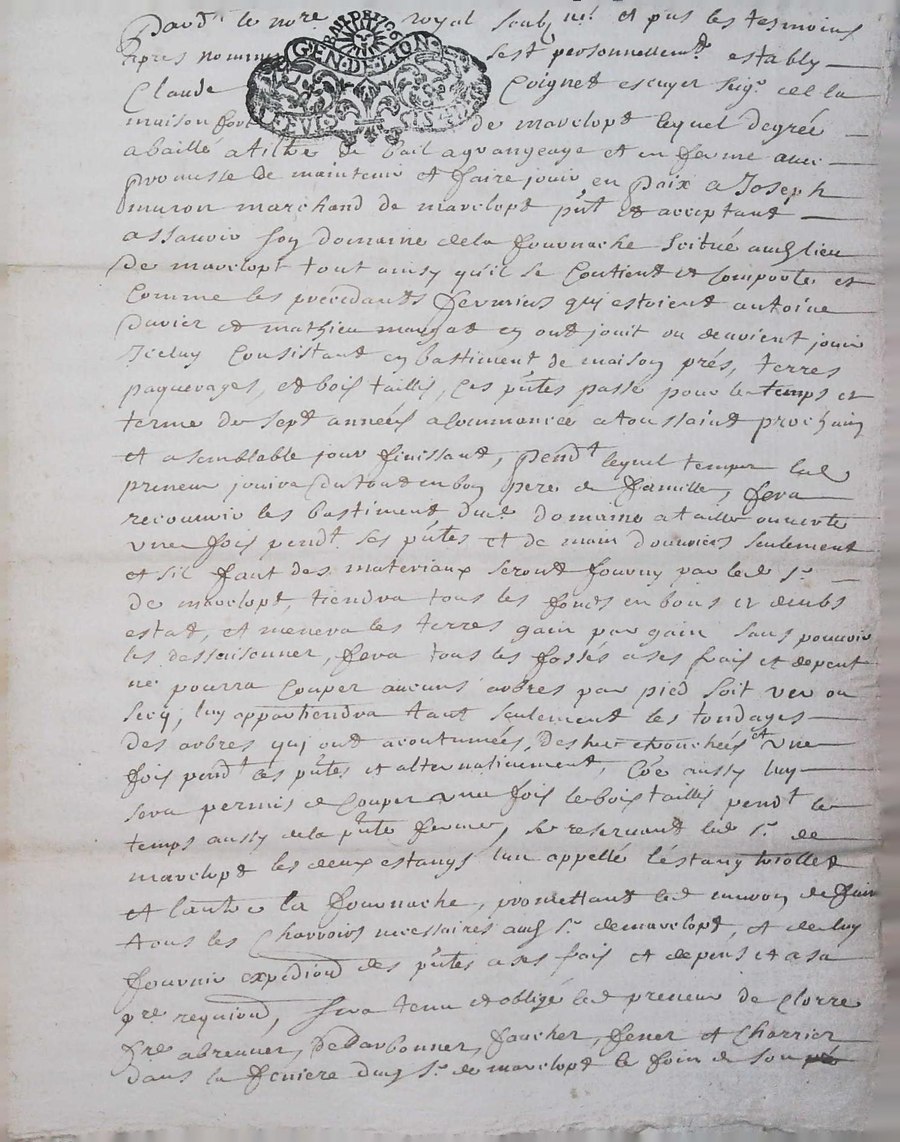 Pard^t le no^re royal soubz né et pñs les tesmoins
apres nommés sest personnellem^t estably
Claude Coignet escuyer seig^r de la
maison fort de mavelopt lequel degrée
a baillé a tiltre de bail a grangeage et en ferme avec
promesse de maintenir et faire jouir en paix a Joseph
muron marchand de mavelopt pñt et acceptant
assavoir son domaine de la fournache scitué aud lieu
de mavelopt tout ainsy qu'il se contient et comporte et
comme les précédants fermiers qui estoient antoine
davier et mathieu mangat en ont jouit ou deuvient jouir
Jceluy Consistant en bastiment de maison prés, terres
paquerages, et bois taillis, les pñtes passé pour le temps et
terme de sept années a commancée a toussaint prochain
et a semblable jour finissant, pend^t lequel temps led
preneur jouira du tout en bon pere de famille, fera
recouvrir les bastiment dud domaine a taille ouverte
une fois pend^t les pñtes et de main d'ouvriers seulement
et sil faut des materiaux seront fourny par led s^r
de mavelopt, tiendra tous les fonds en bons et deubs
estat, et menera les terres gain par gain sans pouvoir
les dessaisonner, fera tous les fossés a ses frais et depent
ne pourra Couper aucuns arbres par pied soit ver ou
secq, luy appartiendra tant seulement les tondages
des arbres qui ont acoutumées, destre ebranchées et une
fois pend^t les pñtes et alternativement, Côe aussy luy
sera permis de Couper une fois le bois taillis pend^t le
temps aussy de la pñte ferme, se reservant led s^r de
mavelopt les deux estangs lun appellé léstang violled
et lautre la fournache, promettant led muron de faire
tous les Charrois necessaires aud s^r de mavelopt, et de luy
fournir expediond des pñtes a ses frais et depens et a sa
p^re requiond, sera tenu et obligé led preneur de Clorre
abreuver, faucher, fener et Charrier
dans la feniere dud s^r de mavelopt le foin de son pré
GEN·DE·LION